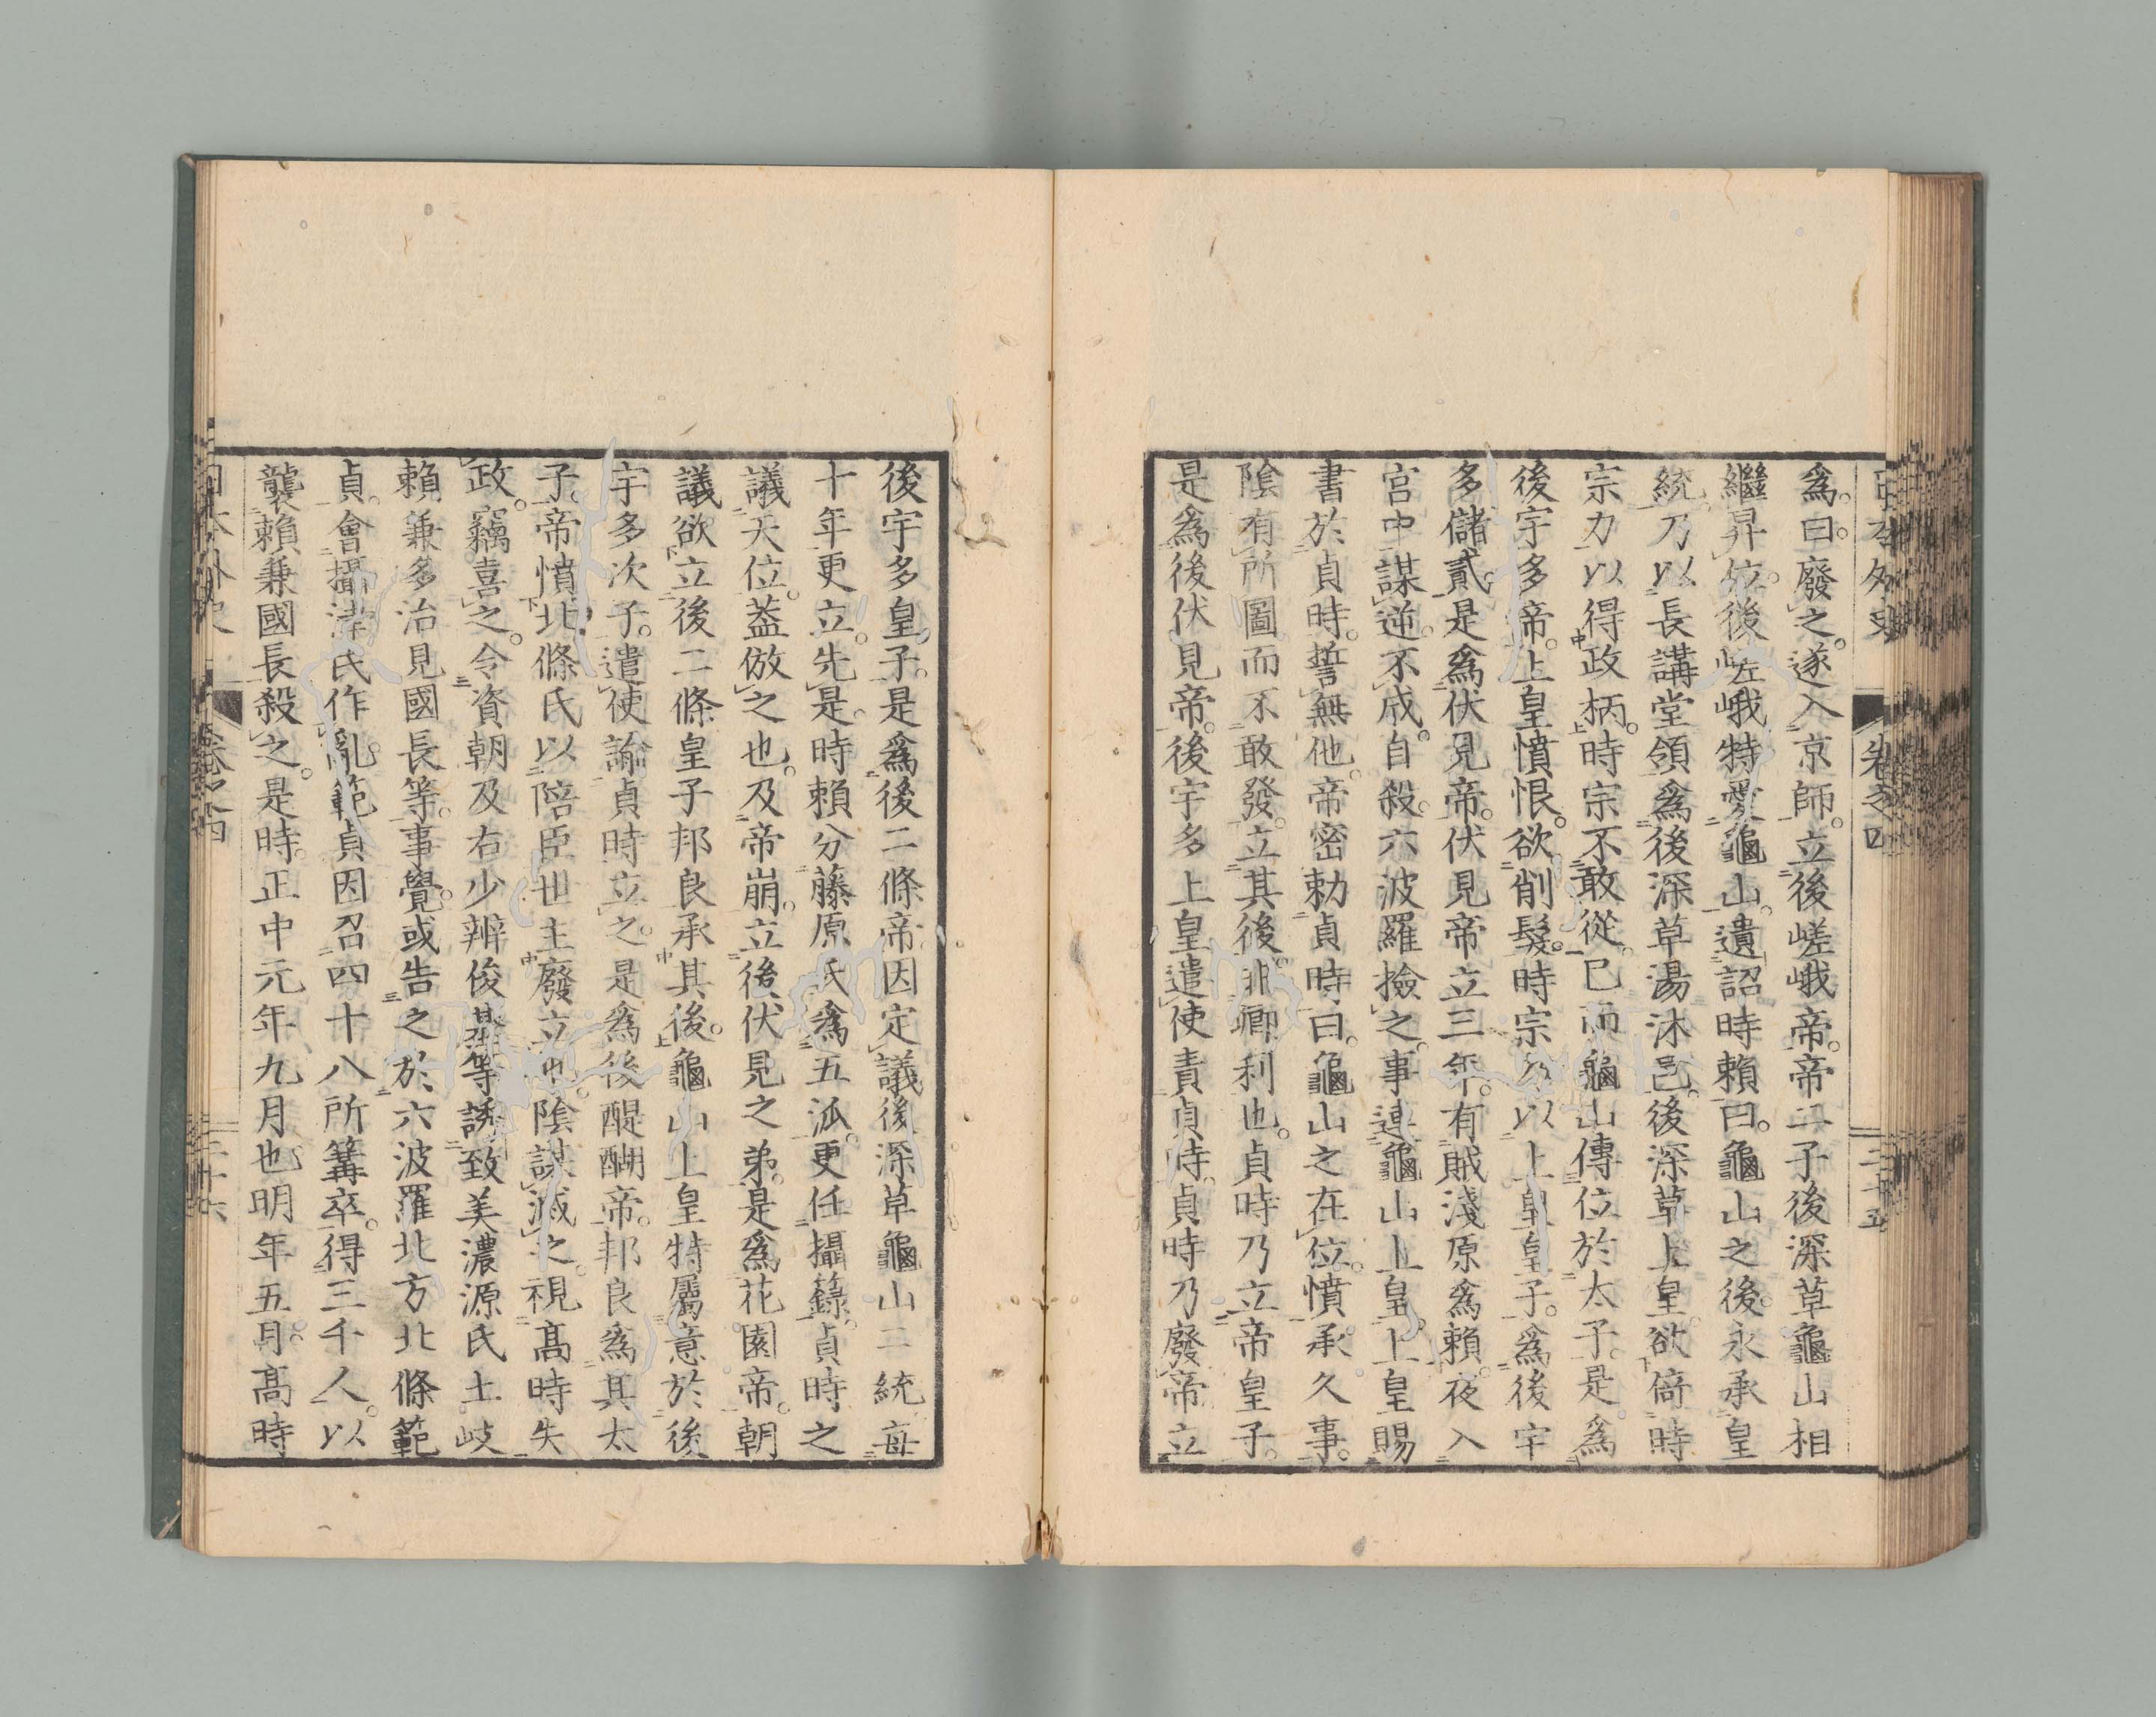 日本外史 卷之四 二十五
爲。曰。廢之。遂入京師。立後嵯峨帝。帝二子後深草龜山相
繼昇位。後嵯峨特愛龜山。遺詔時賴曰。龜山之後。永承皇
統。乃以長講堂領爲後深草湯沐邑。後深草上皇。欲倚時
宗力以得政柄。時宗不敢從。已而龜山傳位於太子。是爲
後宇多帝。上皇憤恨。欲削髮。時宗乃以上皇皇子。爲後宇
多儲貳。是爲伏見帝。伏見帝立三年。有賊淺原爲賴。夜入
宮中謀逆。不成。自殺。六波羅撿之。事連龜山上皇。上皇賜
書於貞時。誓無他。帝密勅貞時曰。龜山之在位。憤承久事。
陰有所圖而不敢發。立其後。非卿利也。貞時乃立帝皇子。
是爲後伏見帝。後宇多上皇遣使責貞時。貞時乃廢帝立
後宇多皇子。是爲後二條帝因定議後深草龜山二統每
十年更立。先是。時賴分藤原氏爲五派。更任攝籙。貞時之
議天位。蓋倣之也。及帝崩。立後伏見之弟。是爲花園帝。朝
議欲立後二條皇子邦良承其後。龜山上皇特屬意於後
宇多次子。遣使諭貞時立之。是爲後醍醐帝。邦良爲其太
子。帝憤北條氏以陪臣世主廢立也。陰謀滅之。視高時失
政。竊喜之。令資朝及右少辨俊基等誘致美濃源氏土岐
賴兼多治見國長等。事覺。或告之於六波羅北方北條範
貞。會攝津氏作亂。範貞因召四十八所篝卒。得三千人。以
襲賴兼國長殺之。是時。正中元年九月也。明年五月。高時
日本外史 卷之四 二十六